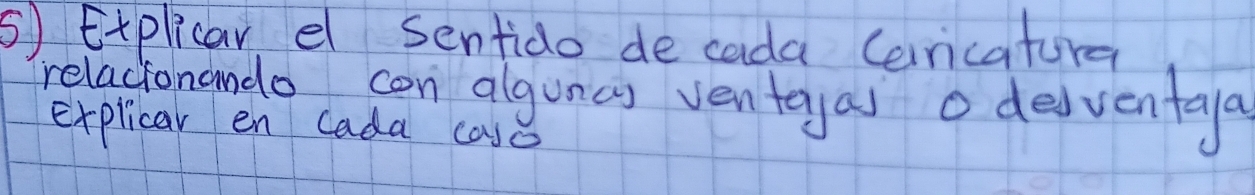 5) Explicar el sentido de cada caricatura
relacionando con algunas ventajas o desventaja
Explicar en cada caso